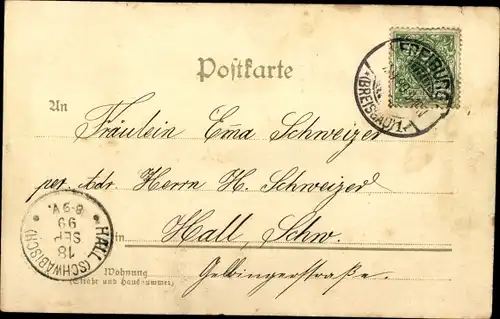 Postkarte
FREIBURG
(BREISGAU) 1.
An
Fräulein Ema Schweizer
per. Adr. Herrn H. Schweizer
in Hall, Schw.
Gelbingerstraße.
Wohnung
(Straße und Hausnummer)
HALL (SCHWÄBISCH)
18
SEP
99
8-9 V.